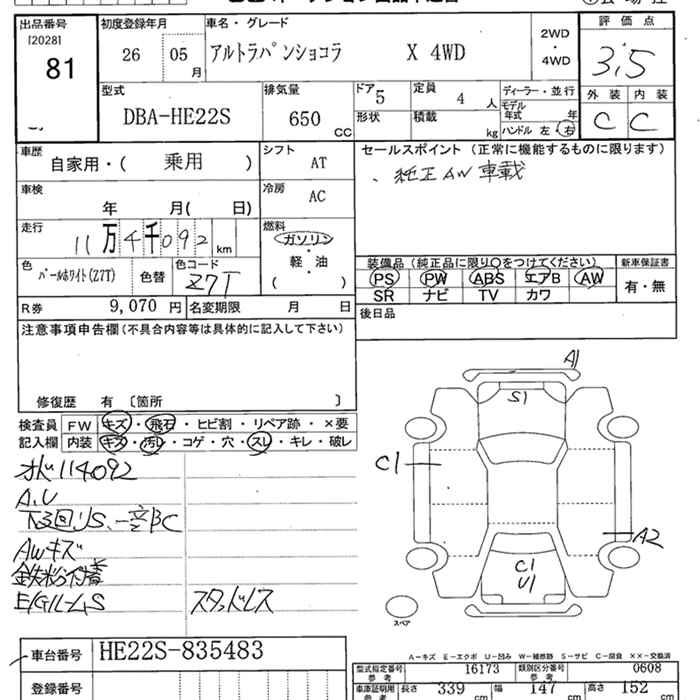 出品番号
[20281
81
初度登録年月
26 05 月
車名・グレード
アルトラパンショコラ X 4WD
2WD
・
4WD
評価点
3.5
外装 内装
C C
型式
DBA-HE22S
排気量
650 CC
ドア 5
定員 4 人
形状
積載 kg
ディーラー・並行
モデル年式 年
ハンドル 左・右
車歴
自家用・( 乗用 )
シフト
AT
セールスポイント (正常に機能するものに限ります)
、純正AW 車載
車検
年 月( 日)
冷房
AC
走行
11万4千092 km
燃料
ガソリン
軽・油
( )
色
パールホワイト(Z7T)
色替
色コード
Z7T
装備品 (純正品に限り○をつけてください)
PS PW ABS エアB AW
SR ナビ TV カワ
新車保証書
有・無
R券 9,070 円
名変期限 月 日
後日品
注意事項申告欄(不具合内容等は具体的に記入して下さい)
修復歴 有 〔箇所 〕
検査員
記入欄
FW キズ・飛石・ヒビ割・リペア跡・×要
内装 キズ・汚レ・コゲ・穴・スレ・キレ・破レ
114092
A.U
下廻りS、一部C
AWキズ
鉄粉付着
E/GルームS
スタッドレス
A1
S1
C1
A2
C1
U1
スペア
車台番号 HE22S-835483
登録番号
A-キズ E-エクボ U-凹み W-補修跡 S-サビ C-腐食 ××-交換済
型式指定番号 参考 16173
類別区分番号 参考 0608
車庫証明用 参考 長さ 339 cm 幅 147 cm 高さ 152 cm